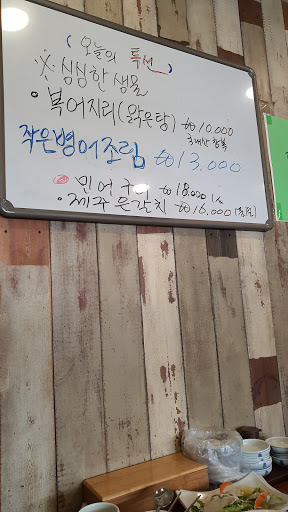 (오늘의 특선)
※ 싱싱한 생물
• 복어지리(맑은탕) ₩10,000
국내산 참복
작은병어조림 ₩13,000
민어구이 ₩18,000 1人
• 제주 은갈치 ₩16,000